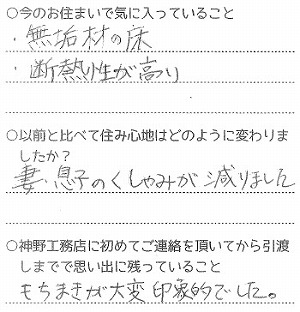 ○今のお住まいで気に入っていること
・無垢材の床
・断熱性が高い
○以前と比べて住み心地はどのように変わりま
したか？
妻、息子のくしゃみが減りました
○神野工務店に初めてご連絡を頂いてから引渡
しまでで思い出に残っていること
もちまきが大変印象的でした。